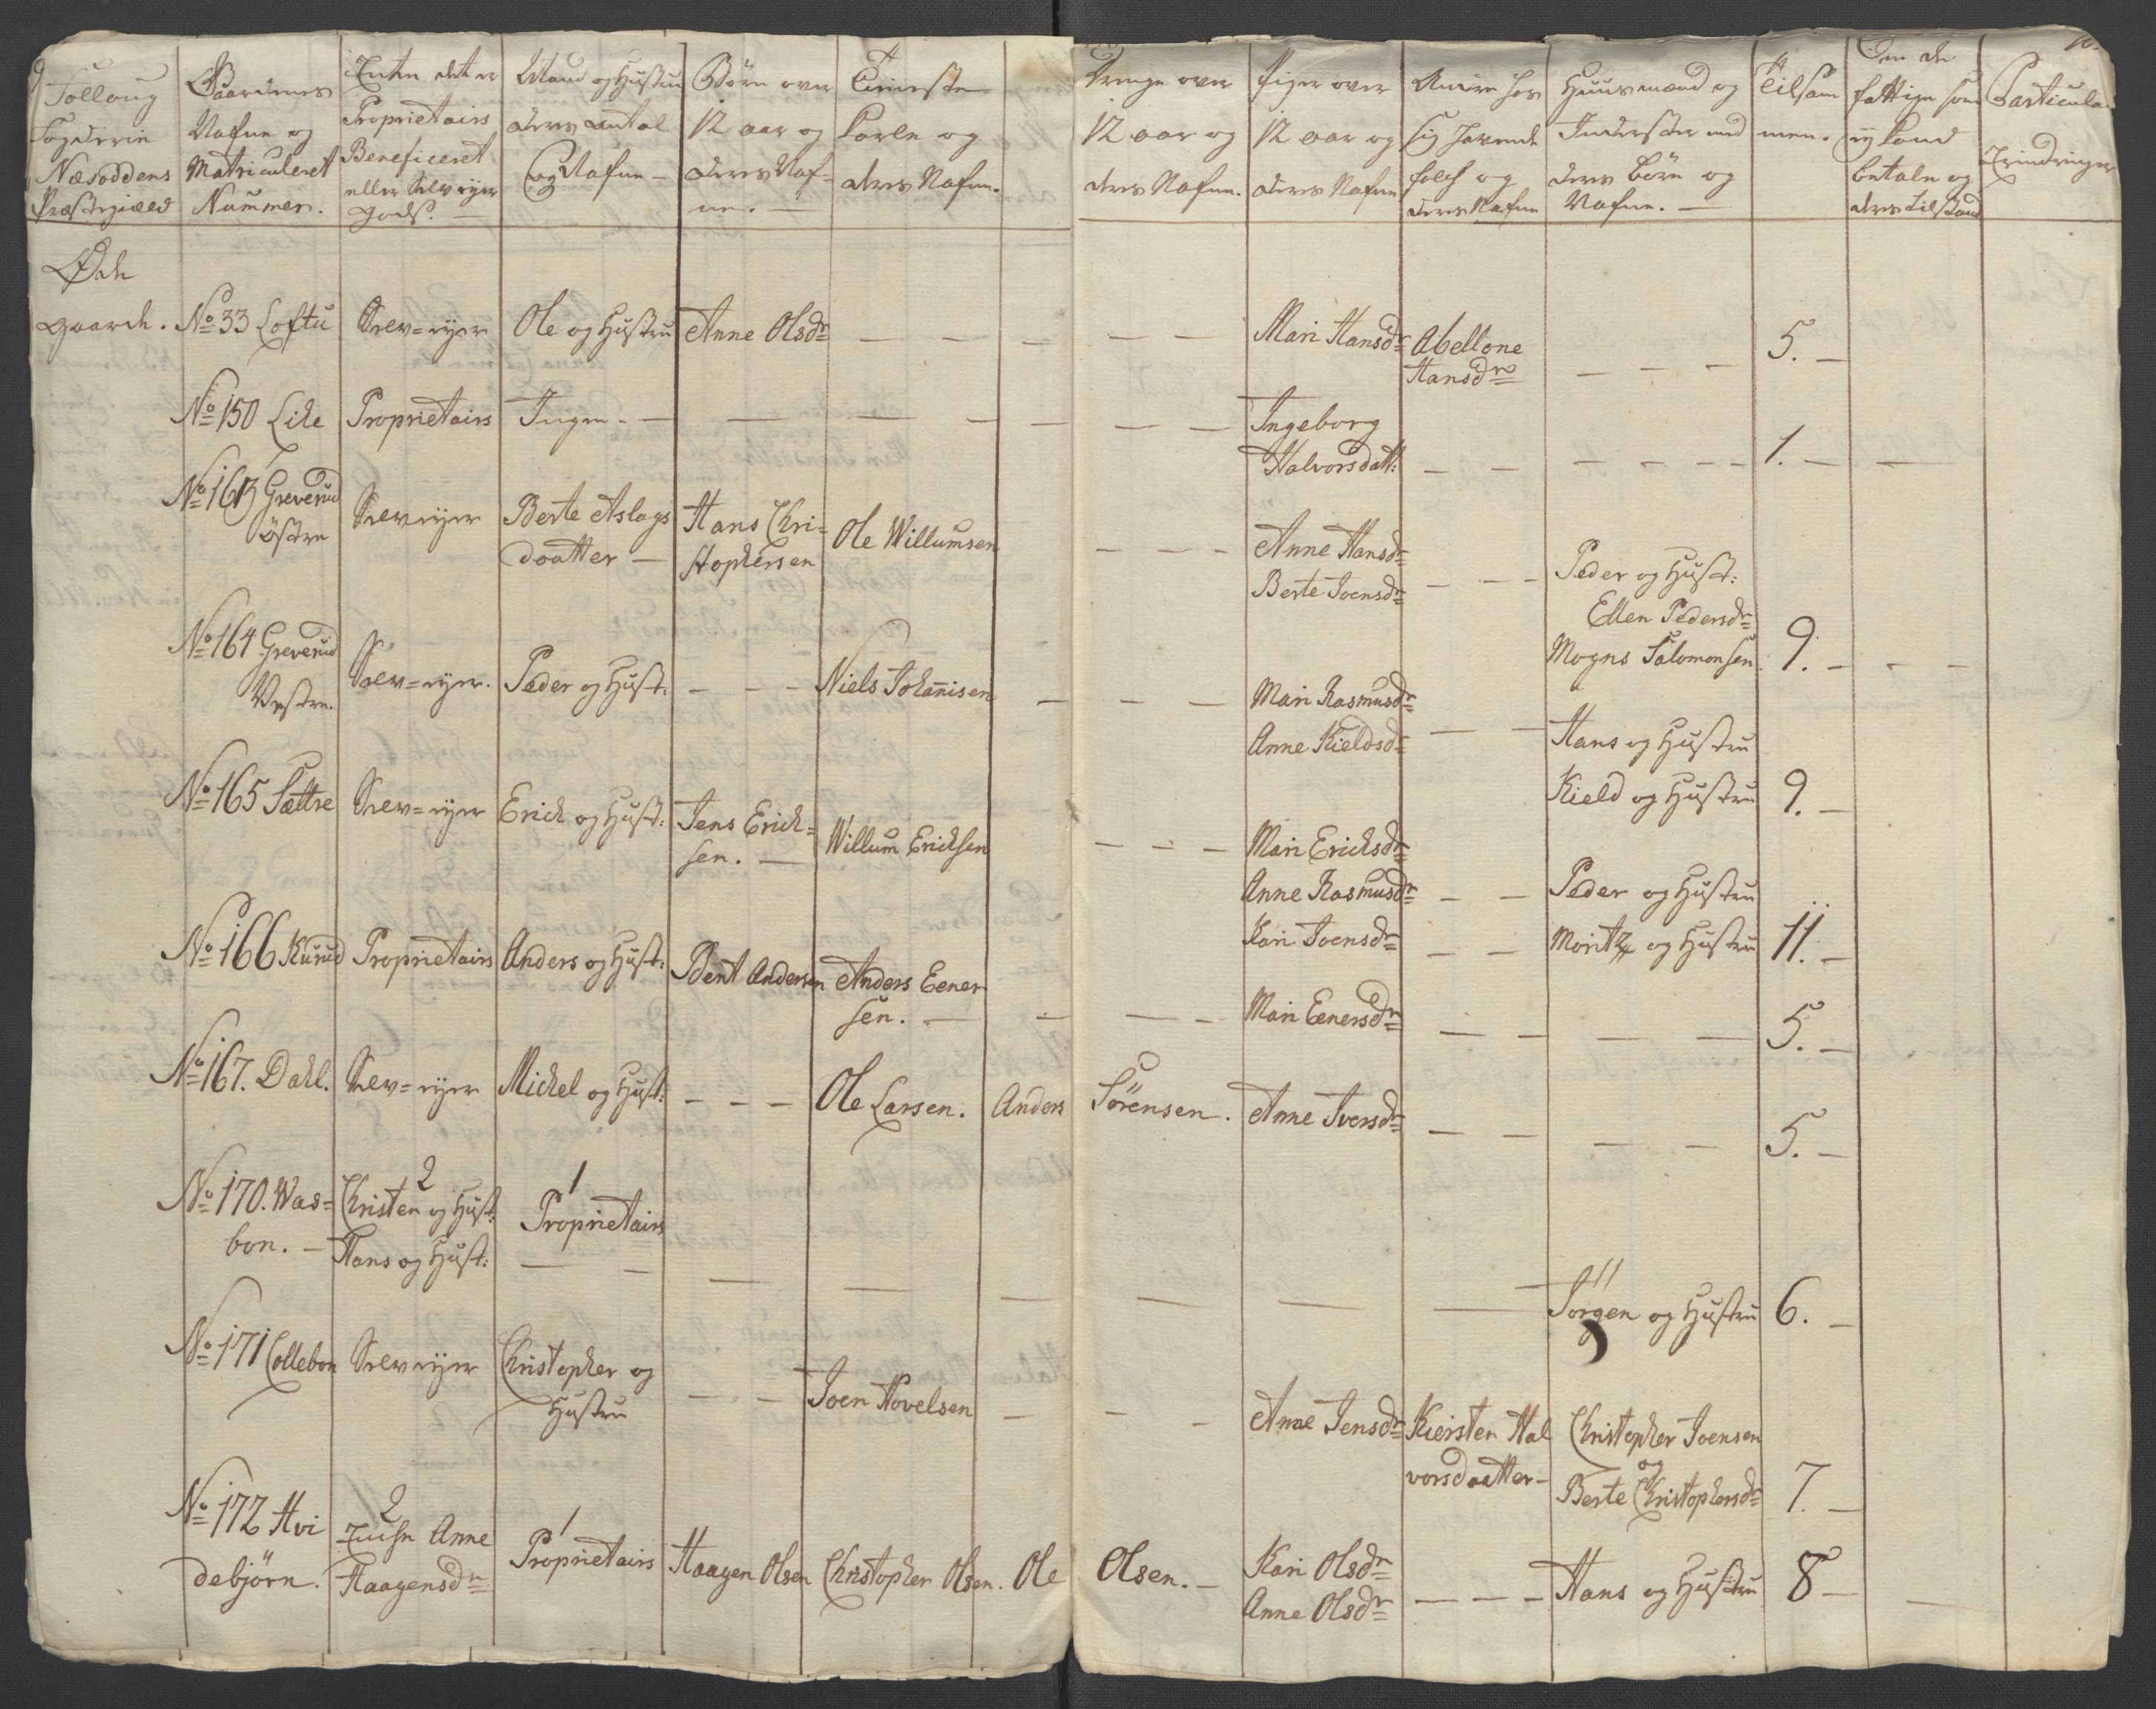 9
Folloug
Fogderie
Næsoddens
Præstegield
Gaardenes
Nafne og
Matriculeret
Nummer.
Enten det er
Proprietairs
Beneficeret
eller Selv-eyer
gods. —
Mand og Hustru
deres antal
og Nafne —
Börn over
12 aar og
deres Naf-
ne. —
Tieniste
Karle og
deres Nafne.
Drenge over
12 aar og
deres Nafne.
Piger over
12 aar og
deres Nafne
Andre hos
sig havende
folch og
deres Nafne
Huusmænd og
Inderster med
deres börn og
Nafne. —
Tilsam
men.
Om de
fattige som
ej kand
betale og
deres tilstand
Particulaire
Erindringer
Öde
gaarde. No 33 Loftu Selv=eyer Ole og Hustru Anne Olsdr — — — — — Mari Hansdr Abellone
Hansdr — — — 5. —
No 150 Lille Proprietairs Ingen. — — — — — — — Ingeborg
Halvorsdatt: — — — — — — 1. — —
No 163 Greverud
östre Selveyer Berte Aslags
daatter — Hans Chri=
stophersen Ole Willumsen — — — Anne Hansdr
Berte Joensdr — — — Peder og Hust:
Ellen Pedersdr
Mogns Salomonsen. 9. — — —
No 164 Greverud
Vestre. Selv=eyer. Peder og Hust: — — — Niels Johanisen — — — Mari Rasmusdr
Anne Kieldsd — — Hans og Hustru
Kield og Hustru 9. —
No 165 Sættre Selv=eyer Erich og Hust: Jens Erich=
sen. — Willum Erichsen — — — Mari Erichsdr
Anne Rasmusdr — — Peder og Hustru
Kari Joensdr — — Moritz og Hustru 11. —
No 166 Kurud Proprietairs Anders og Hust: Bent Andersen Anders Eener
sen. — — — — Mari Eenersdr — — — — 5. —
No 167. Dahl. Selv=eyer Michel og Hust: — — — Ole Larsen. Anders Sörensen. Anne Iversdr — — — — 5. —
No 170. Was=
bon. — 2
Christen og Hust:
Hans og Hust: 1
Proprietairs
— — — — — — — — 11
Jorgen og Hustru 6. —
No 171 Collebon Selveyer Christopher og
Hustru — — Joen Povelsen — — — Anne Jensdr Kiersten Hal
vorsdaatter — Christopher Joensen
og
Berte Christophersdr 7. —
No 172 Hvi
debjörn. 2
Enke Anne
Haagensdr 1
Proprietairs Haagen Olsen Christopher Olsen. Ole Olsen. — Kari Olsdr
Anne Olsdr — — — Hans og Hustru 8 — —